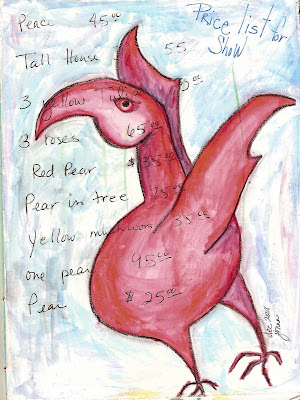 Price list for
Show
Peace 45.00
Tall House 55
3 yellow
3 roses 65.00
Red Pear $35.00
Pear in tree 25.00
Yellow mushroom 35.00
one pear 45.00
Pear $25.00